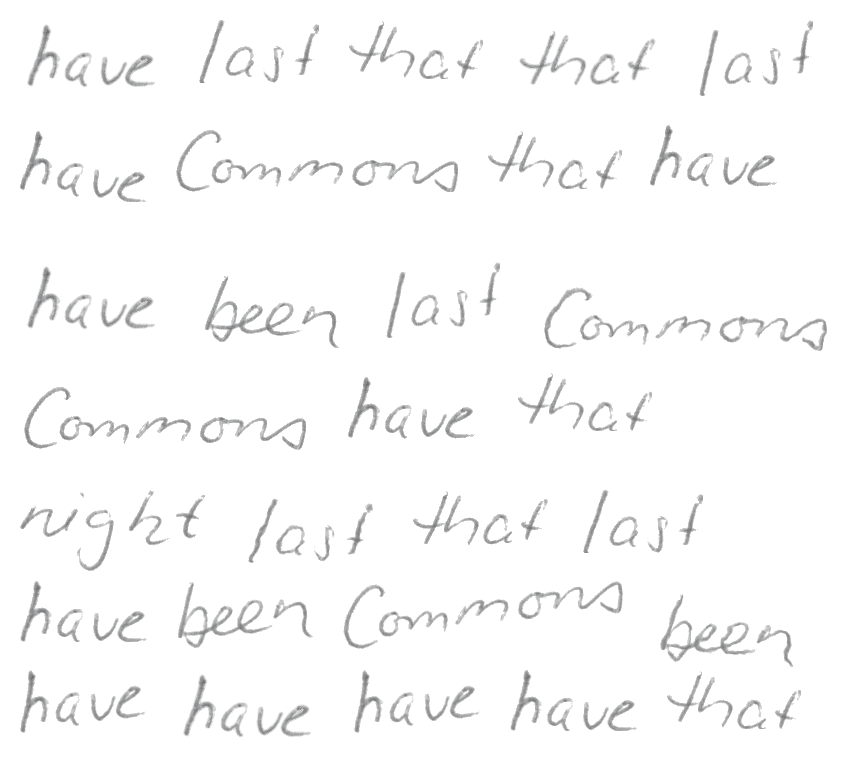 have last that that last
have Commons that have
have been last Commons
Commons have that
night last that last
have been Commons been
have have have have that